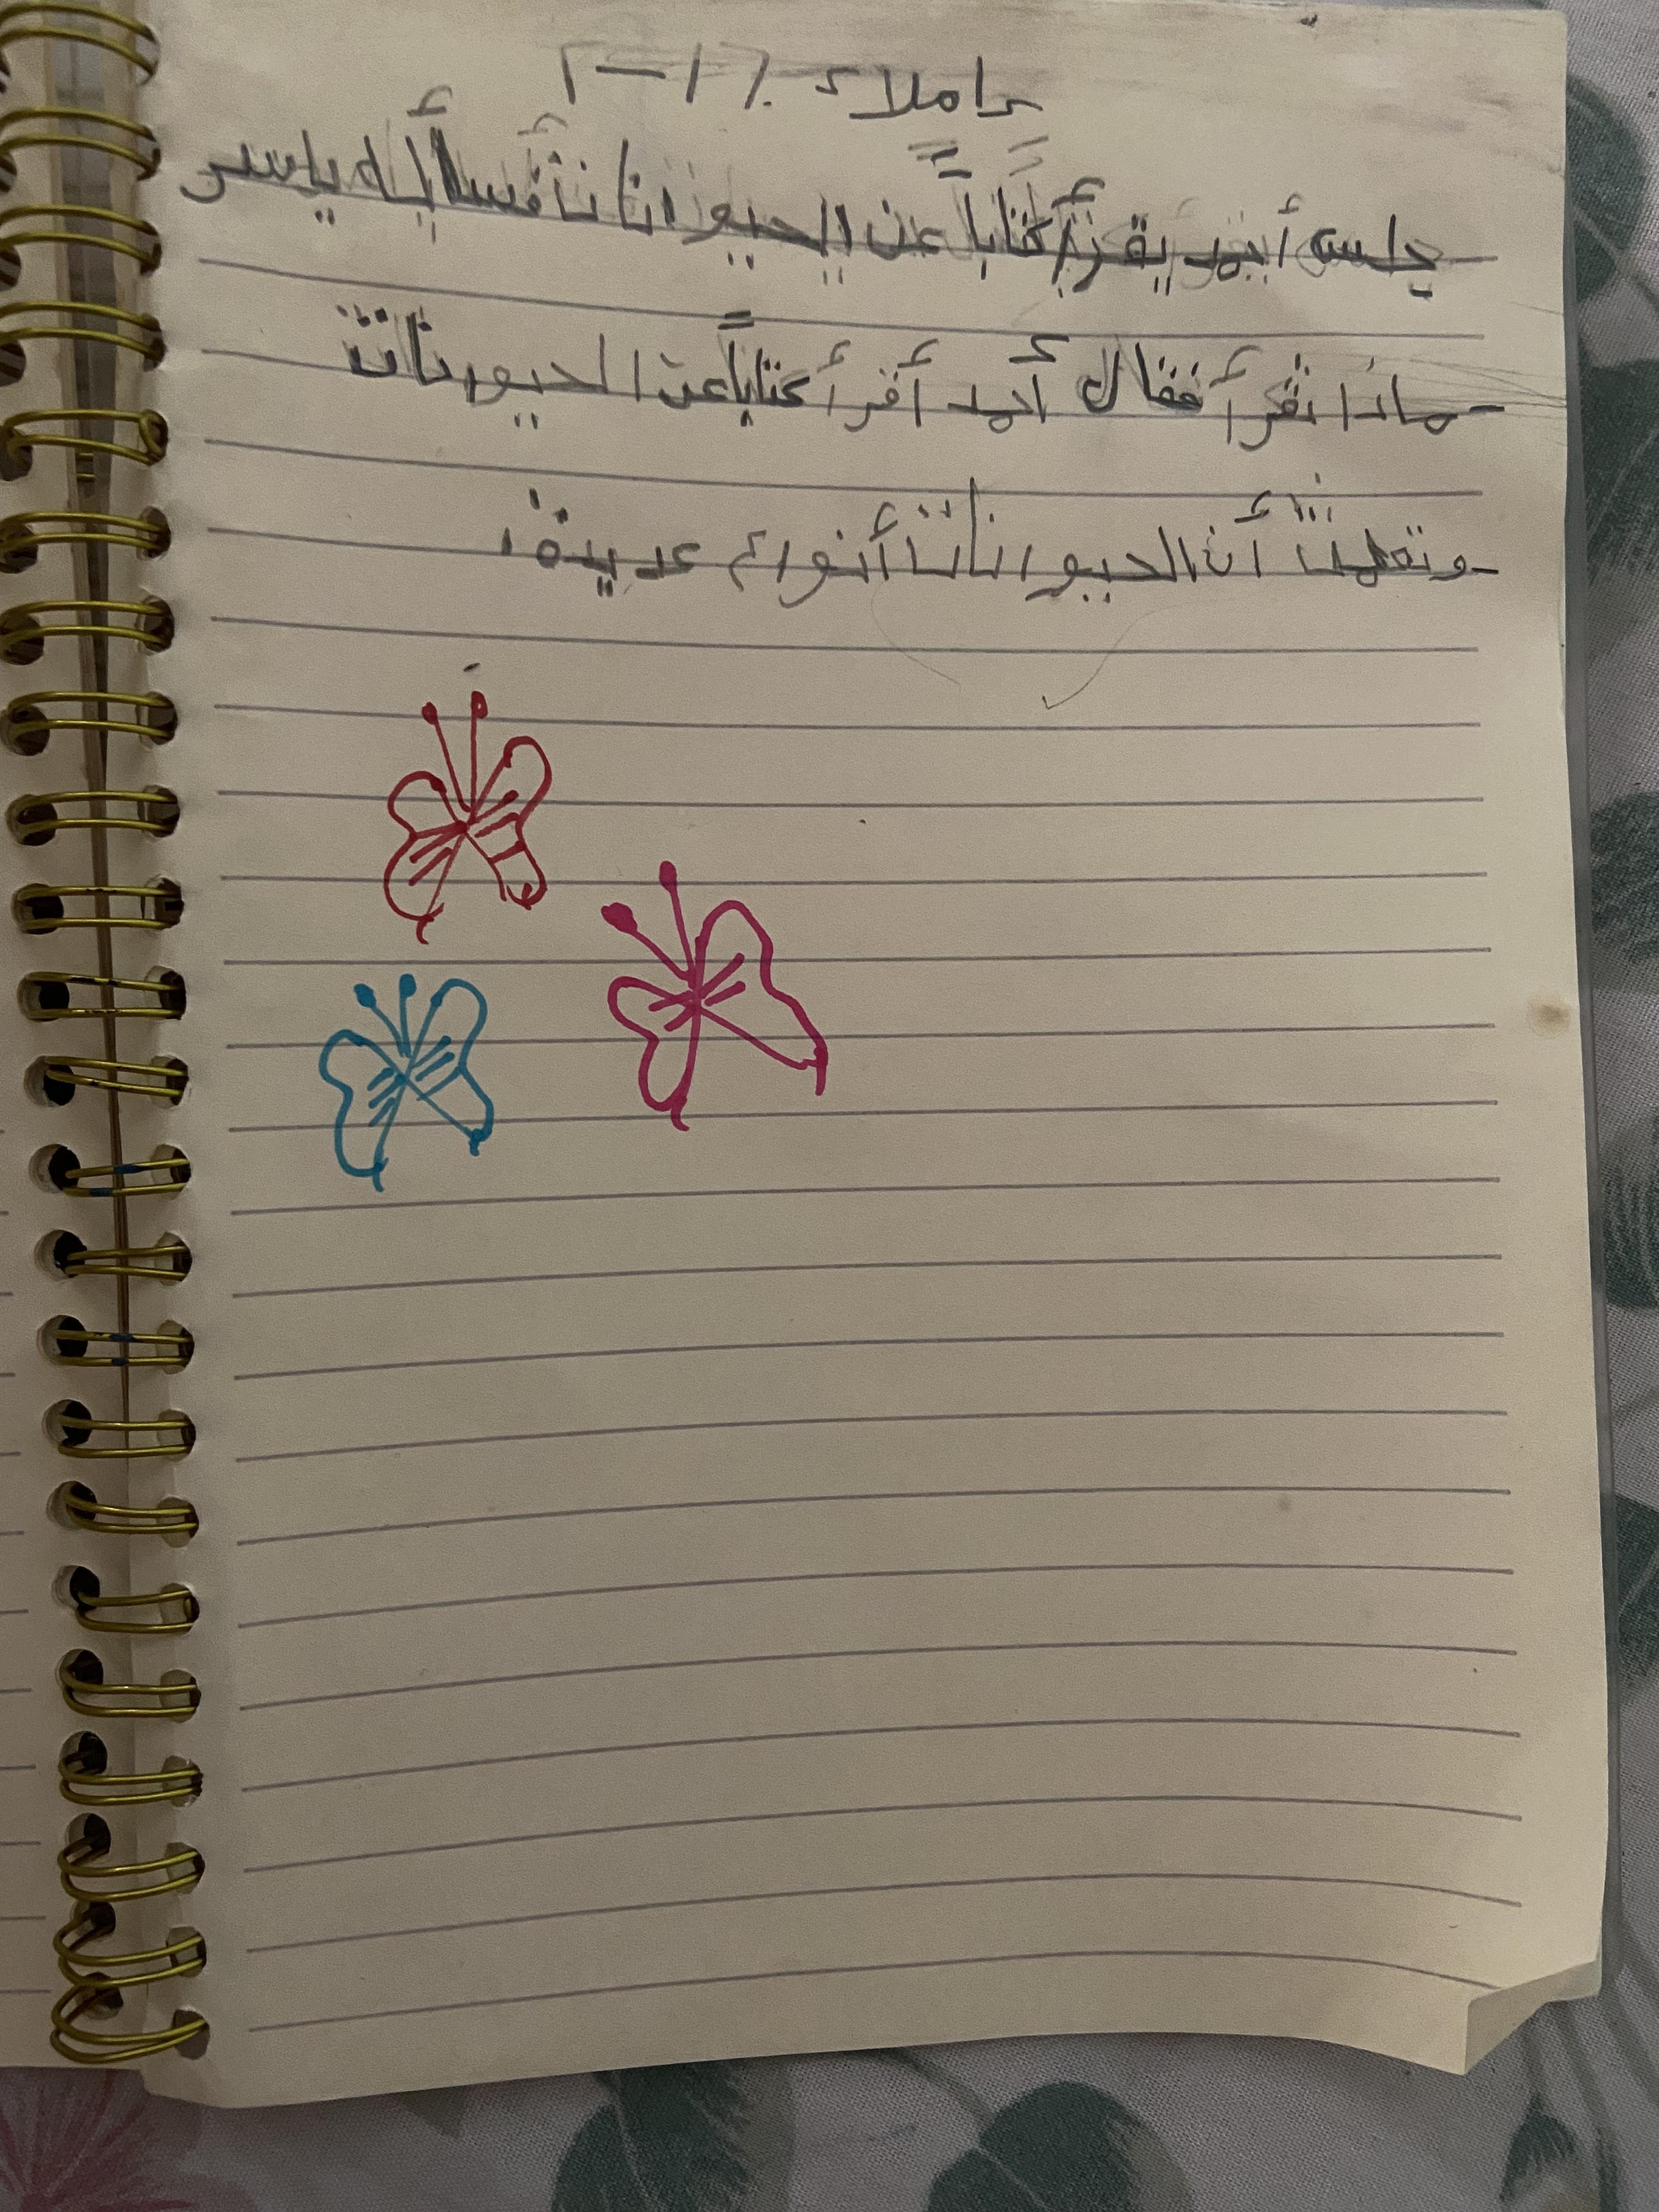 إملاء
جلس أحمد يقرأ كتاباً عن الحيوانات فسأله ياسر
ماذا تقرأ فقال أحمد أقرأ كتاباً عن الحيونات
وتعلمت أن الحيوانات أنواع عديدة